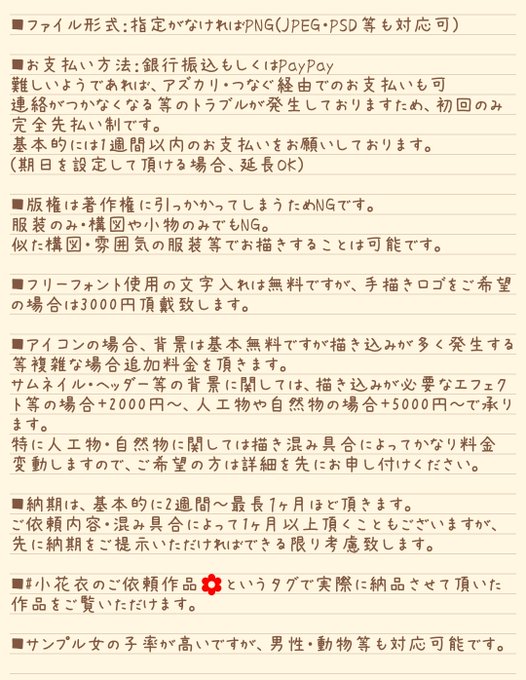 ■ファイル形式:指定がなければPNG(JPEG・PSD等も対応可)
■お支払い方法:銀行振込もしくはPayPay
難しいようであれば、アズカリ・つなぐ経由でのお支払いも可
連絡がつかなくなる等のトラブルが発生しておりますため、初回のみ
完全先払い制です。
基本的には1週間以内のお支払いをお願いしております。
(期日を設定して頂ける場合、延長OK)
■版権は著作権に引っかかってしまうためNGです。
服装のみ・構図や小物のみでもNG。
似た構図・雰囲気の服装等でお描きすることは可能です。
■フリーフォント使用の文字入れは無料ですが、手描きロゴをご希望
の場合は3000円頂戴致します。
■アイコンの場合、背景は基本無料ですが描き込みが多く発生する
等複雑な場合追加料金を頂きます。
サムネイル・ヘッダー等の背景に関しては、描き込みが必要なエフェク
ト等の場合+2000円〜、人工物や自然物の場合+5000円〜で承り
ます。
特に人工物・自然物に関しては描き混み具合によってかなり料金
変動しますので、ご希望の方は詳細を先にお申し付けください。
■納期は、基本的に2週間〜最長1ヶ月ほど頂きます。
ご依頼内容・混み具合によって1ヶ月以上頂くこともございますが、
先に納期をご提示いただければできる限り考慮致します。
■#小花衣のご依頼作品というタグで実際に納品させて頂いた
作品をご覧いただけます。
■サンプル女の子率が高いですが、男性・動物等も対応可能です。